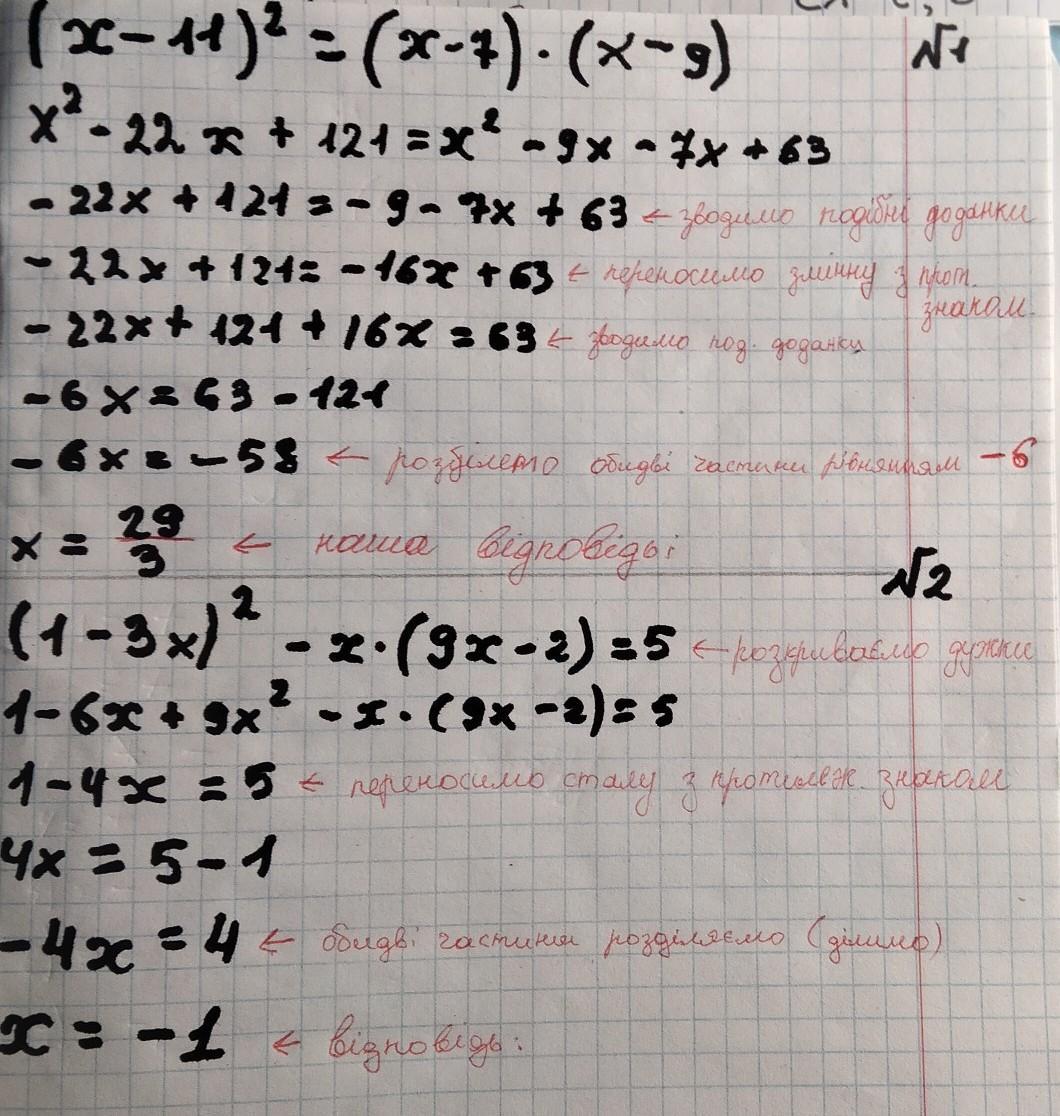 (x-11)² = (x-7)·(x-9) №1
x² - 22x + 121 = x² - 9x - 7x + 63
-22x + 121 = -9 - 7x + 63 ← зводимо подібні доданки
-22x + 121 = -16x + 63 ← переносимо змінну з прот.
знаком.
-22x + 121 + 16x = 63 ← зводимо под. доданки
-6x = 63 - 121
-6x = -58 ← обидві частини -6
x = 29/3 ← наша відповідь:
№2
(1-3x)² - x·(9x-2) = 5 ← розкриваємо дужки
1-6x + 9x² - x·(9x-2) = 5
1-4x = 5 ← переносимо сталу з протилеж. знаком
4x = 5-1
-4x = 4 ← обидві частини розділяємо (ділимо)
x = -1 ← відповідь: